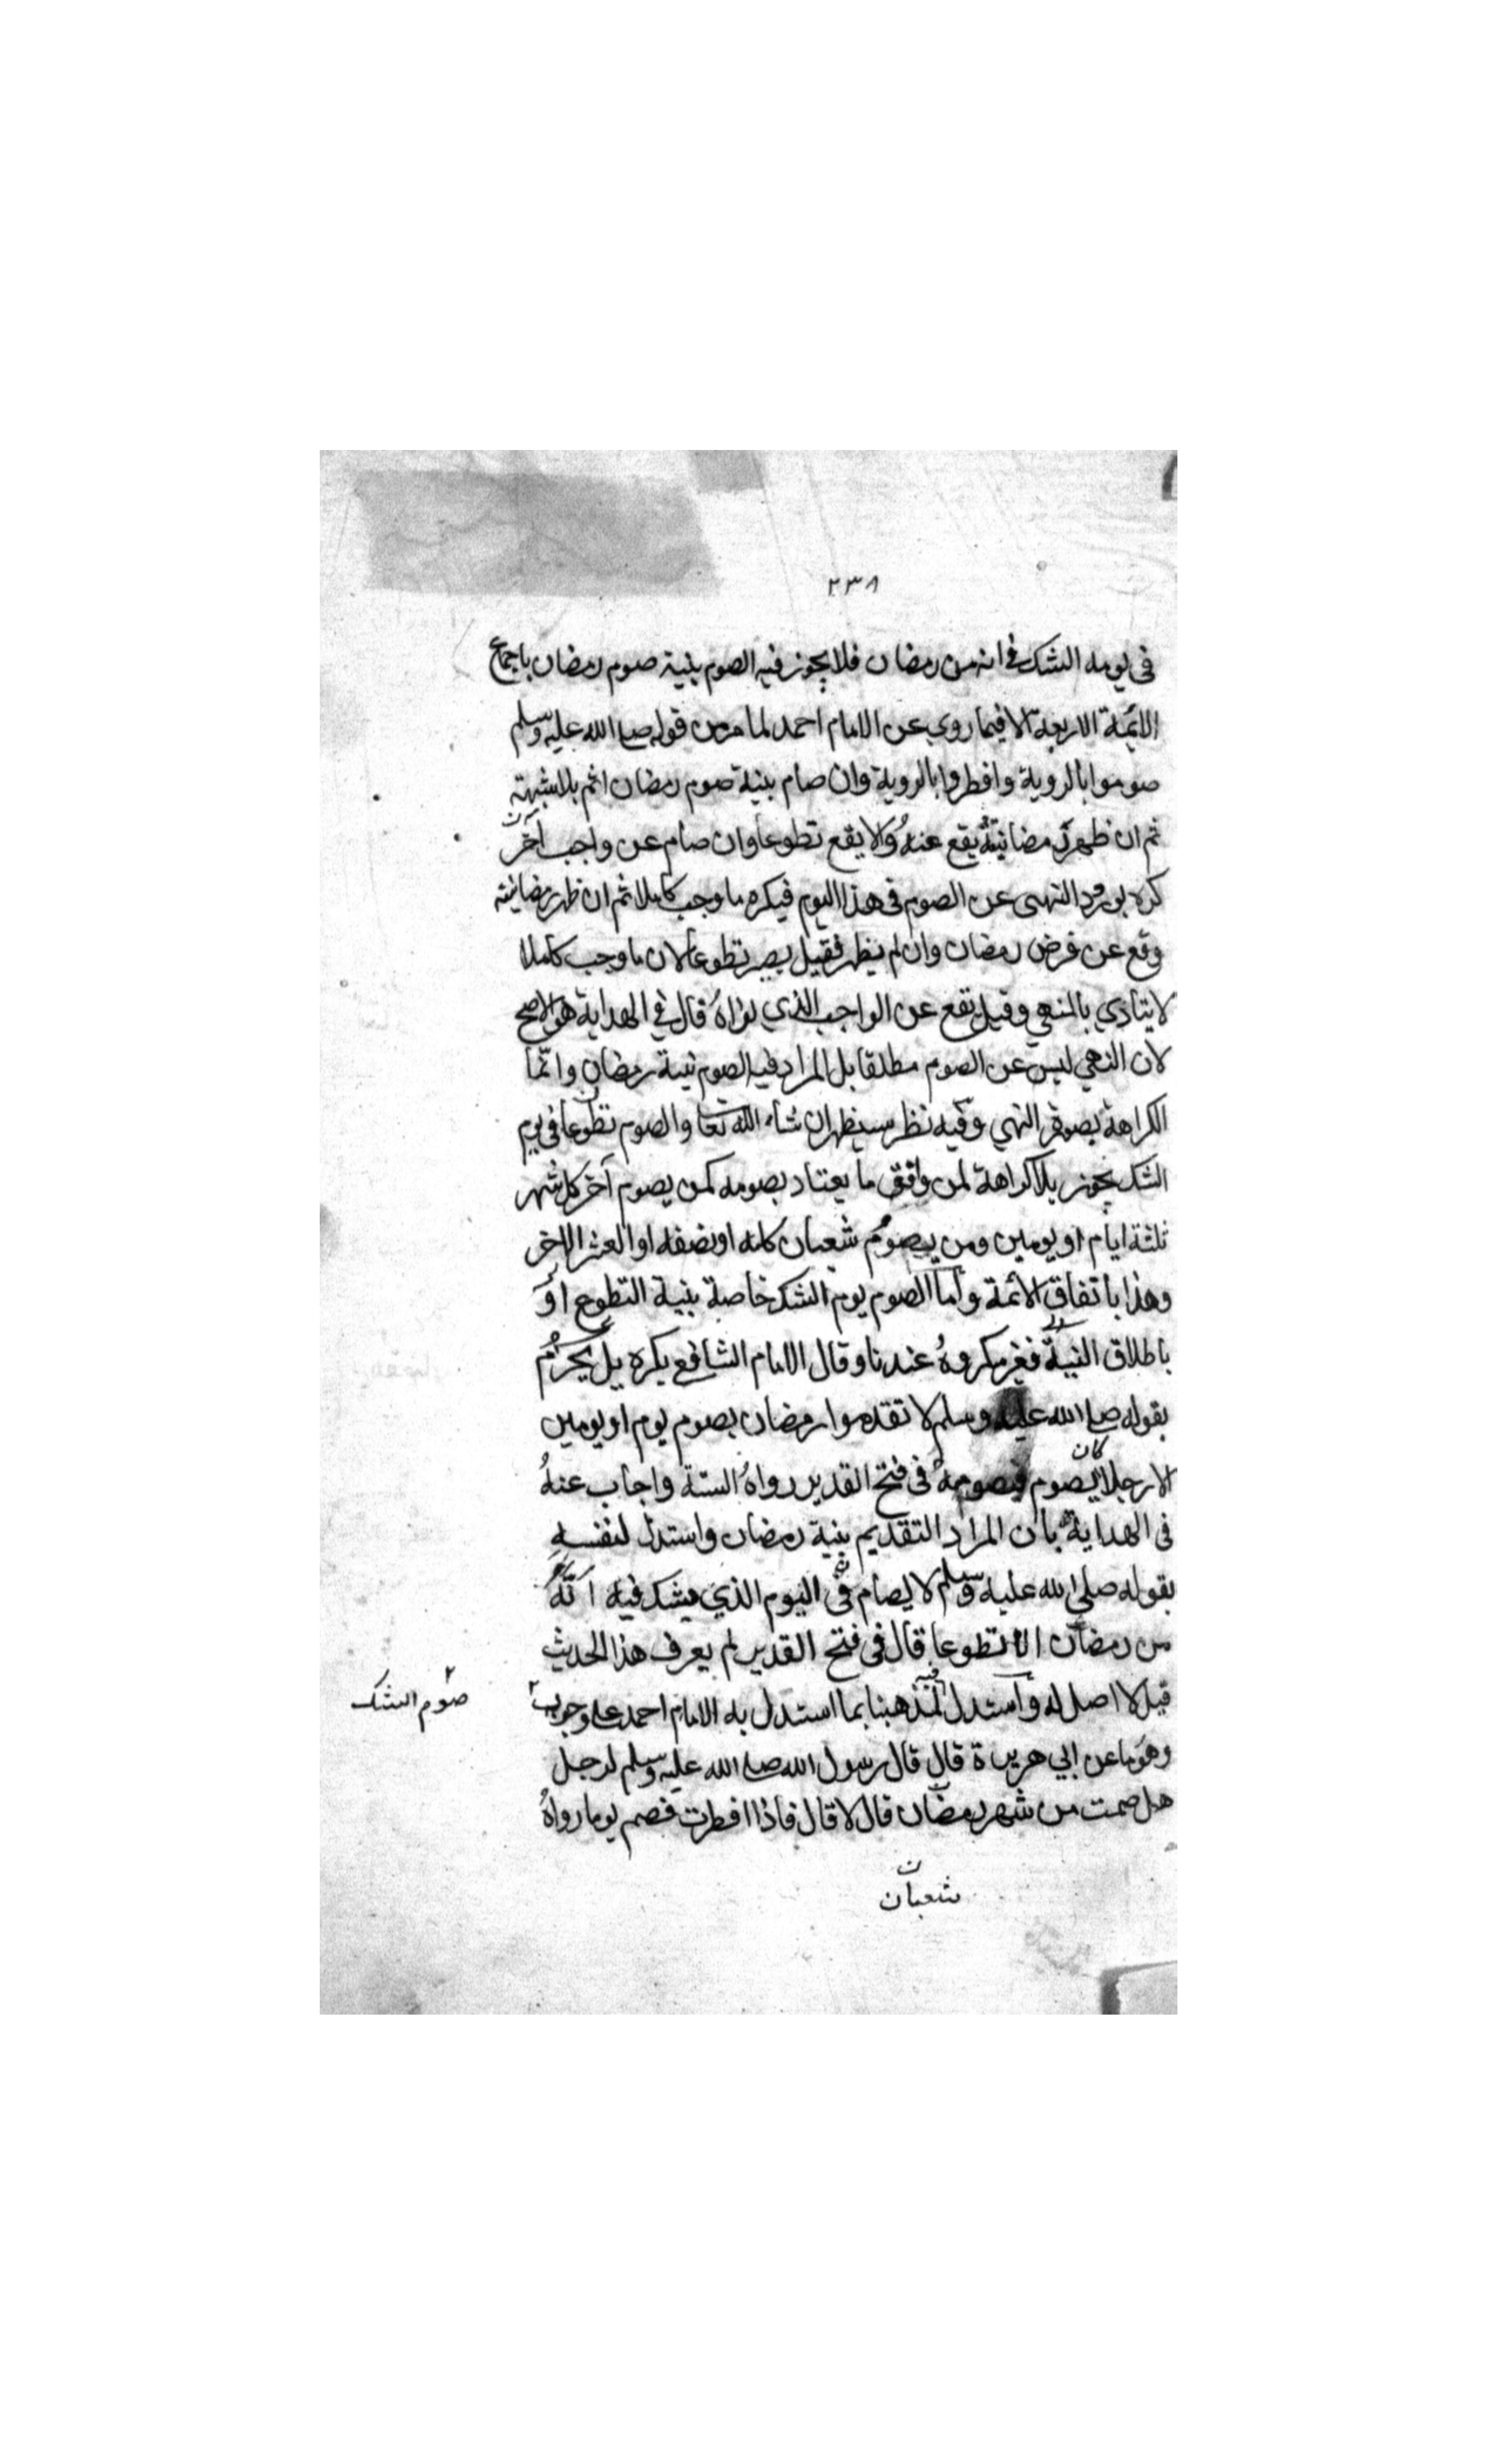 ٢٣٨
فى يومه الشك فى انه من رمضان فلا يجوز فيه الصوم بنية صوم رمضان باجماع
الائمة الاربعة الا فيما روى عن الامام احمد لما مر من قوله صلى الله عليه وسلم
صوموا بالروية وافطروا بالروية وان صام بنية صوم رمضان اثم بلا شبهته
ثم ان ظهر رمضانيته يقع عنه والا يقع تطوعا وان صام عن واجب آخر
كره بورود النهى عن الصوم فى هذا اليوم فيكره ما وجب كاملا ثم ان ظهر رمضانيته
وقع عن فرض رمضان وان لم يظهر فقيل يصير تطوعا لان ما وجب كاملا
لا يتادي بالمنهي وقيل يقع عن الواجب الذي نواه قال فى الهداية هو الاصح
لان النهي ليس عن الصوم مطلقا بل المراد فيه الصوم بنية رمضان وانما
الكراهة بصورة النهي وفيه نظر سيظهر ان شاء الله تعا والصوم تطوعا فى يوم
الشك يجوز بلا كراهة لمن وافق ما يعتاد بصومه كمن يصوم آخر كل شهر
ثلثة ايام او يومين ومن يصوم شعبان كله او نصفه او العشر الاخر
وهذا باتفاق الائمة واما الصوم يوم الشك خاصة بنية التطوع او
باطلاق النية فغير مكروه عندنا وقال الامام الشافعي يكره بل يحرم
بقوله صلى الله عليه وسلم لا تقدموا رمضان بصوم يوم او يومين
الا رجلا كان يصوم فيصومه فى فتح القدير رواه الستة واجاب عنه
فى الهداية بان المراد التقديم بنية رمضان واستدل لنفسه
بقوله صلى الله عليه وسلم لا يصام فى اليوم الذي يشك فيه انه
من رمضان الا تطوعا قال فى فتح القدير لم يعرف هذا الحديث
قيل لا اصل له واستدل لمذهبنا بما استدل به الامام احمد على وجوب
صوم الشك
وهو ما عن ابي هريرة قال قال رسول الله صلى الله عليه وسلم لرجل
هل صمت من شهر رمضان قال لا قال فاذا افطرت فصم يوما رواه
شعبان